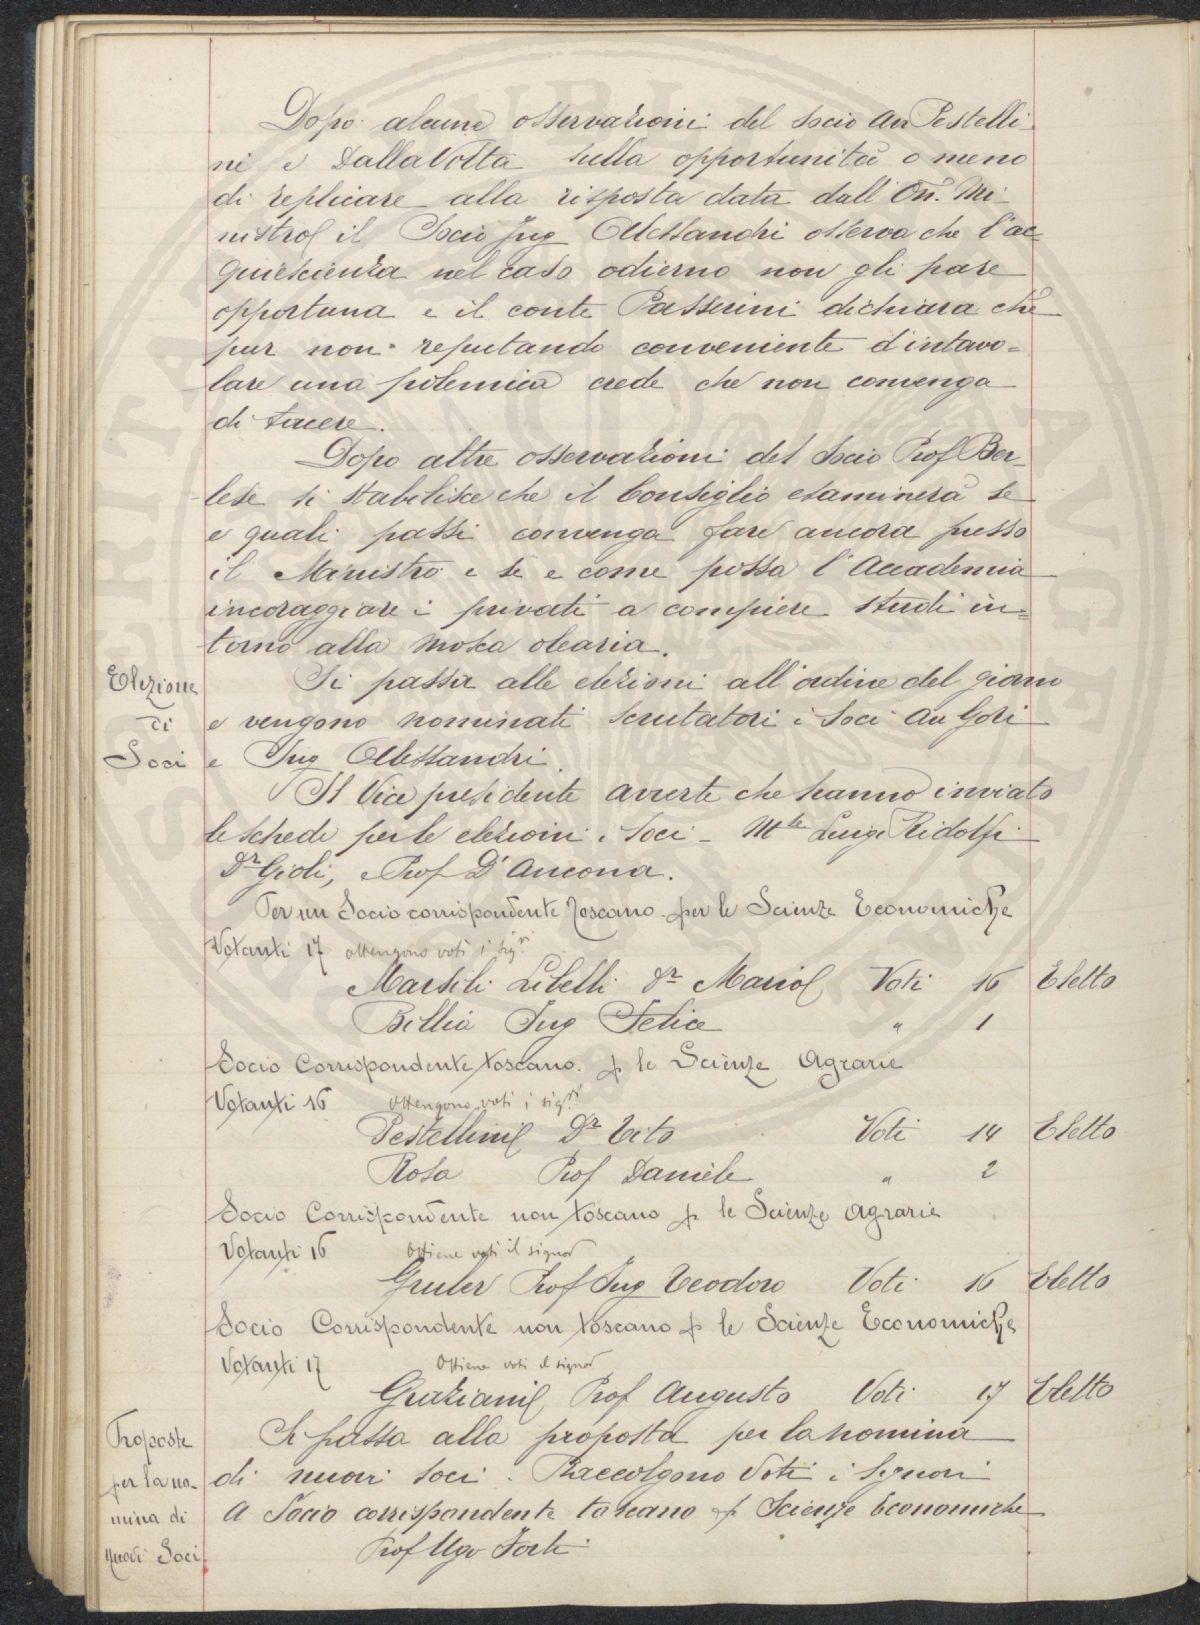 Dopo alcune osservazioni del socio Avv Pestelli
ni e Dalla Volta sulla opportunità o meno
di replicare alla risposta data dall' On. Mi-
nistro il Socio Ing Alessandri osserva che l'ac-
quiescienza nel caso odierno non gli pare
opportuna e il conte Passerini dichiara che
pur non reputando conveniente d'intavo-
lare una polemica crede che non convenga
di tacere.
Dopo altre osservazioni del Socio Prof Ber-
lese si stabilisce che il Consiglio esaminerà se
e quali passi convenga fare ancora presso
il Ministro e se e come possa l'Accademia
incoraggiare i privati a compiere studi in-
torno alla mosca olearia.
Elezione
di
Soci
Si passa alle elezioni all'ordine del giorno
e vengono nominati scrutatori i Soci Avv Gori
e Ing Alessandri.
Il Vice presidente averte che hanno inviato
le schede per le elezioni i Soci - Mse Luigi Ridolfi
Dr Gioli, e Prof D'Ancona.
Per un Socio corrispondente Toscano per le Scienze Economiche
Votanti 17 ottengono voti i sigri
Marsili Libelli Dr Mario Voti 16 Eletto
Billia Ing Felice " 1
Socio Corrispondente toscano p le Scienze Agrarie
Votanti 16 ottengono voti i sigri
Pestellini Dr Tito Voti 14 Eletto
Rosa Prof Daniele " 2
Socio Corrispondente non toscano p le Scienze Agrarie
Votanti 16 Ottiene voti il signor
Gruber Prof Ing Teodoro Voti 16 Eletto
Socio Corrispondente non toscano p le Scienze Economiche
Votanti 17 Ottiene voti il signor
Graziani Prof Augusto Voti 17 Eletto
Proposte
per la no-
mina di
nuovi Soci
Si passa alla proposta per la nomina
di nuovi soci. Raccolgono Voti i Signori
A Socio corrispondente toscano p Scienze Economiche
Prof Ugo Forti